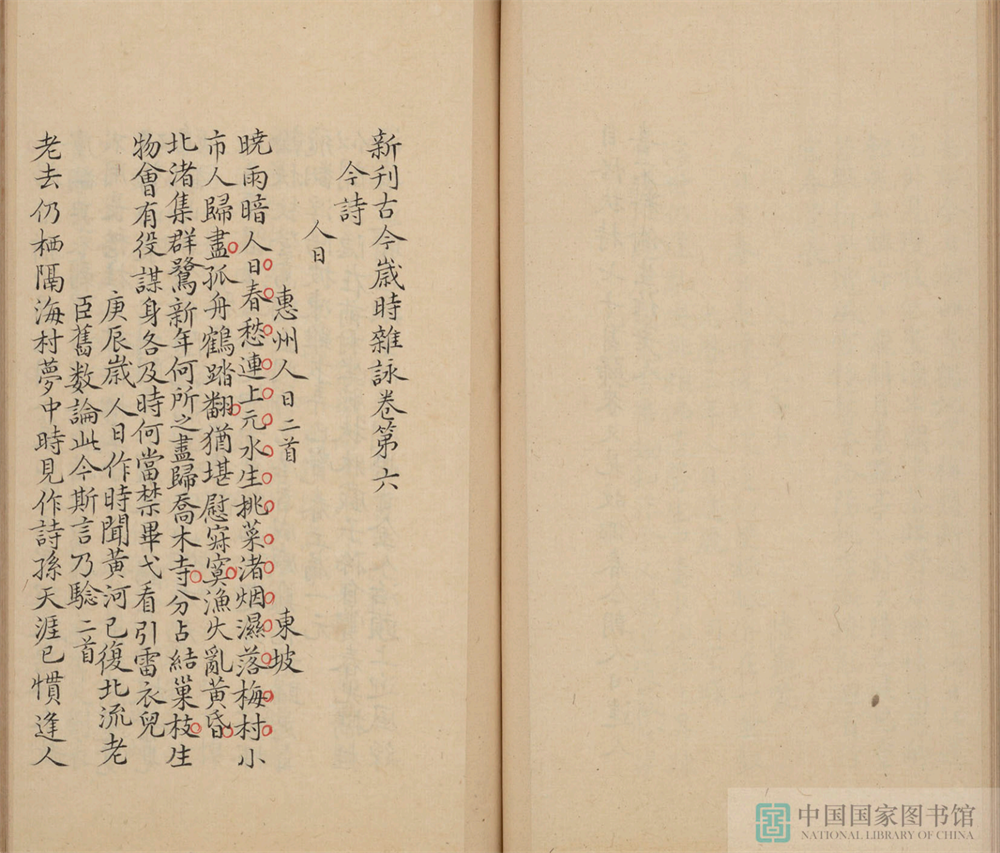 新刋古今歲時雜詠卷第六
今詩
人日
惠州人日二首 東坡
曉雨暗人日春愁連上元水生挑菜渚烟濕落梅村小
市人歸盡孤舟鶴踏翻猶堪慰寂寞漁火亂黃昏
北渚集群鷺新年何所之盡歸喬木寺分占結巢枝生
物會有役謀身各及時何當禁畢弋看引雷衣兒
庚辰歲人日作時聞黃河已復北流老
臣舊数論此今斯言乃驗二首
老去仍栖隔海村夢中時見作詩孫天涯已慣逢人
中国国家图书馆
NATIONAL LIBRARY OF CHINA